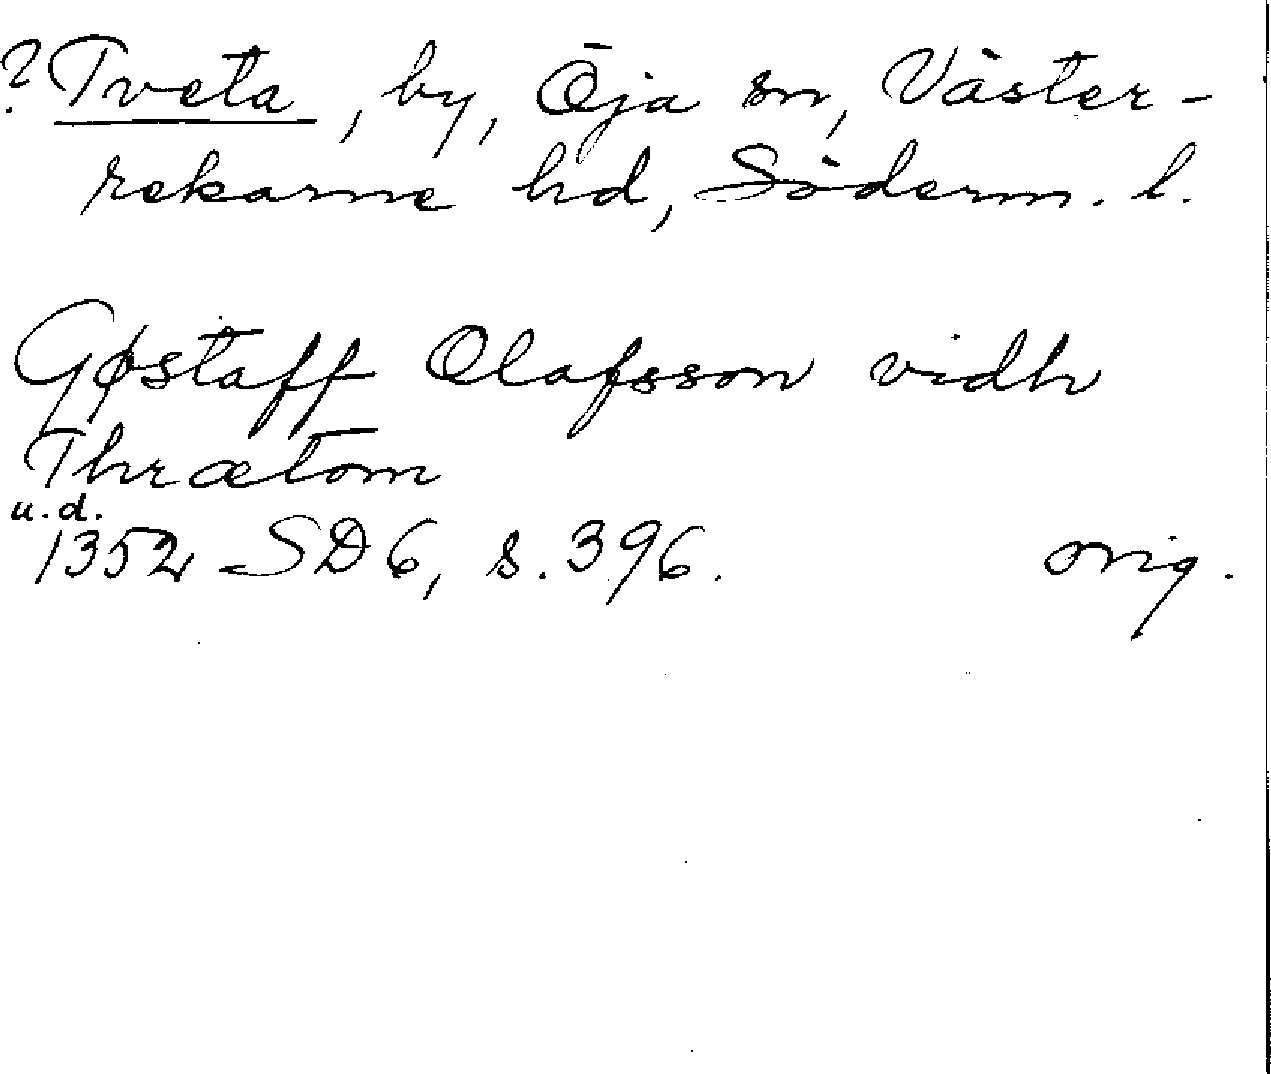 ? Tveta, by, Öja sn, Väster-
rekarne hd, Söderm. l.
Gøstaff Olafsson vidh
Thrætom
u.d.
1352 SD 6, s. 396. orig.